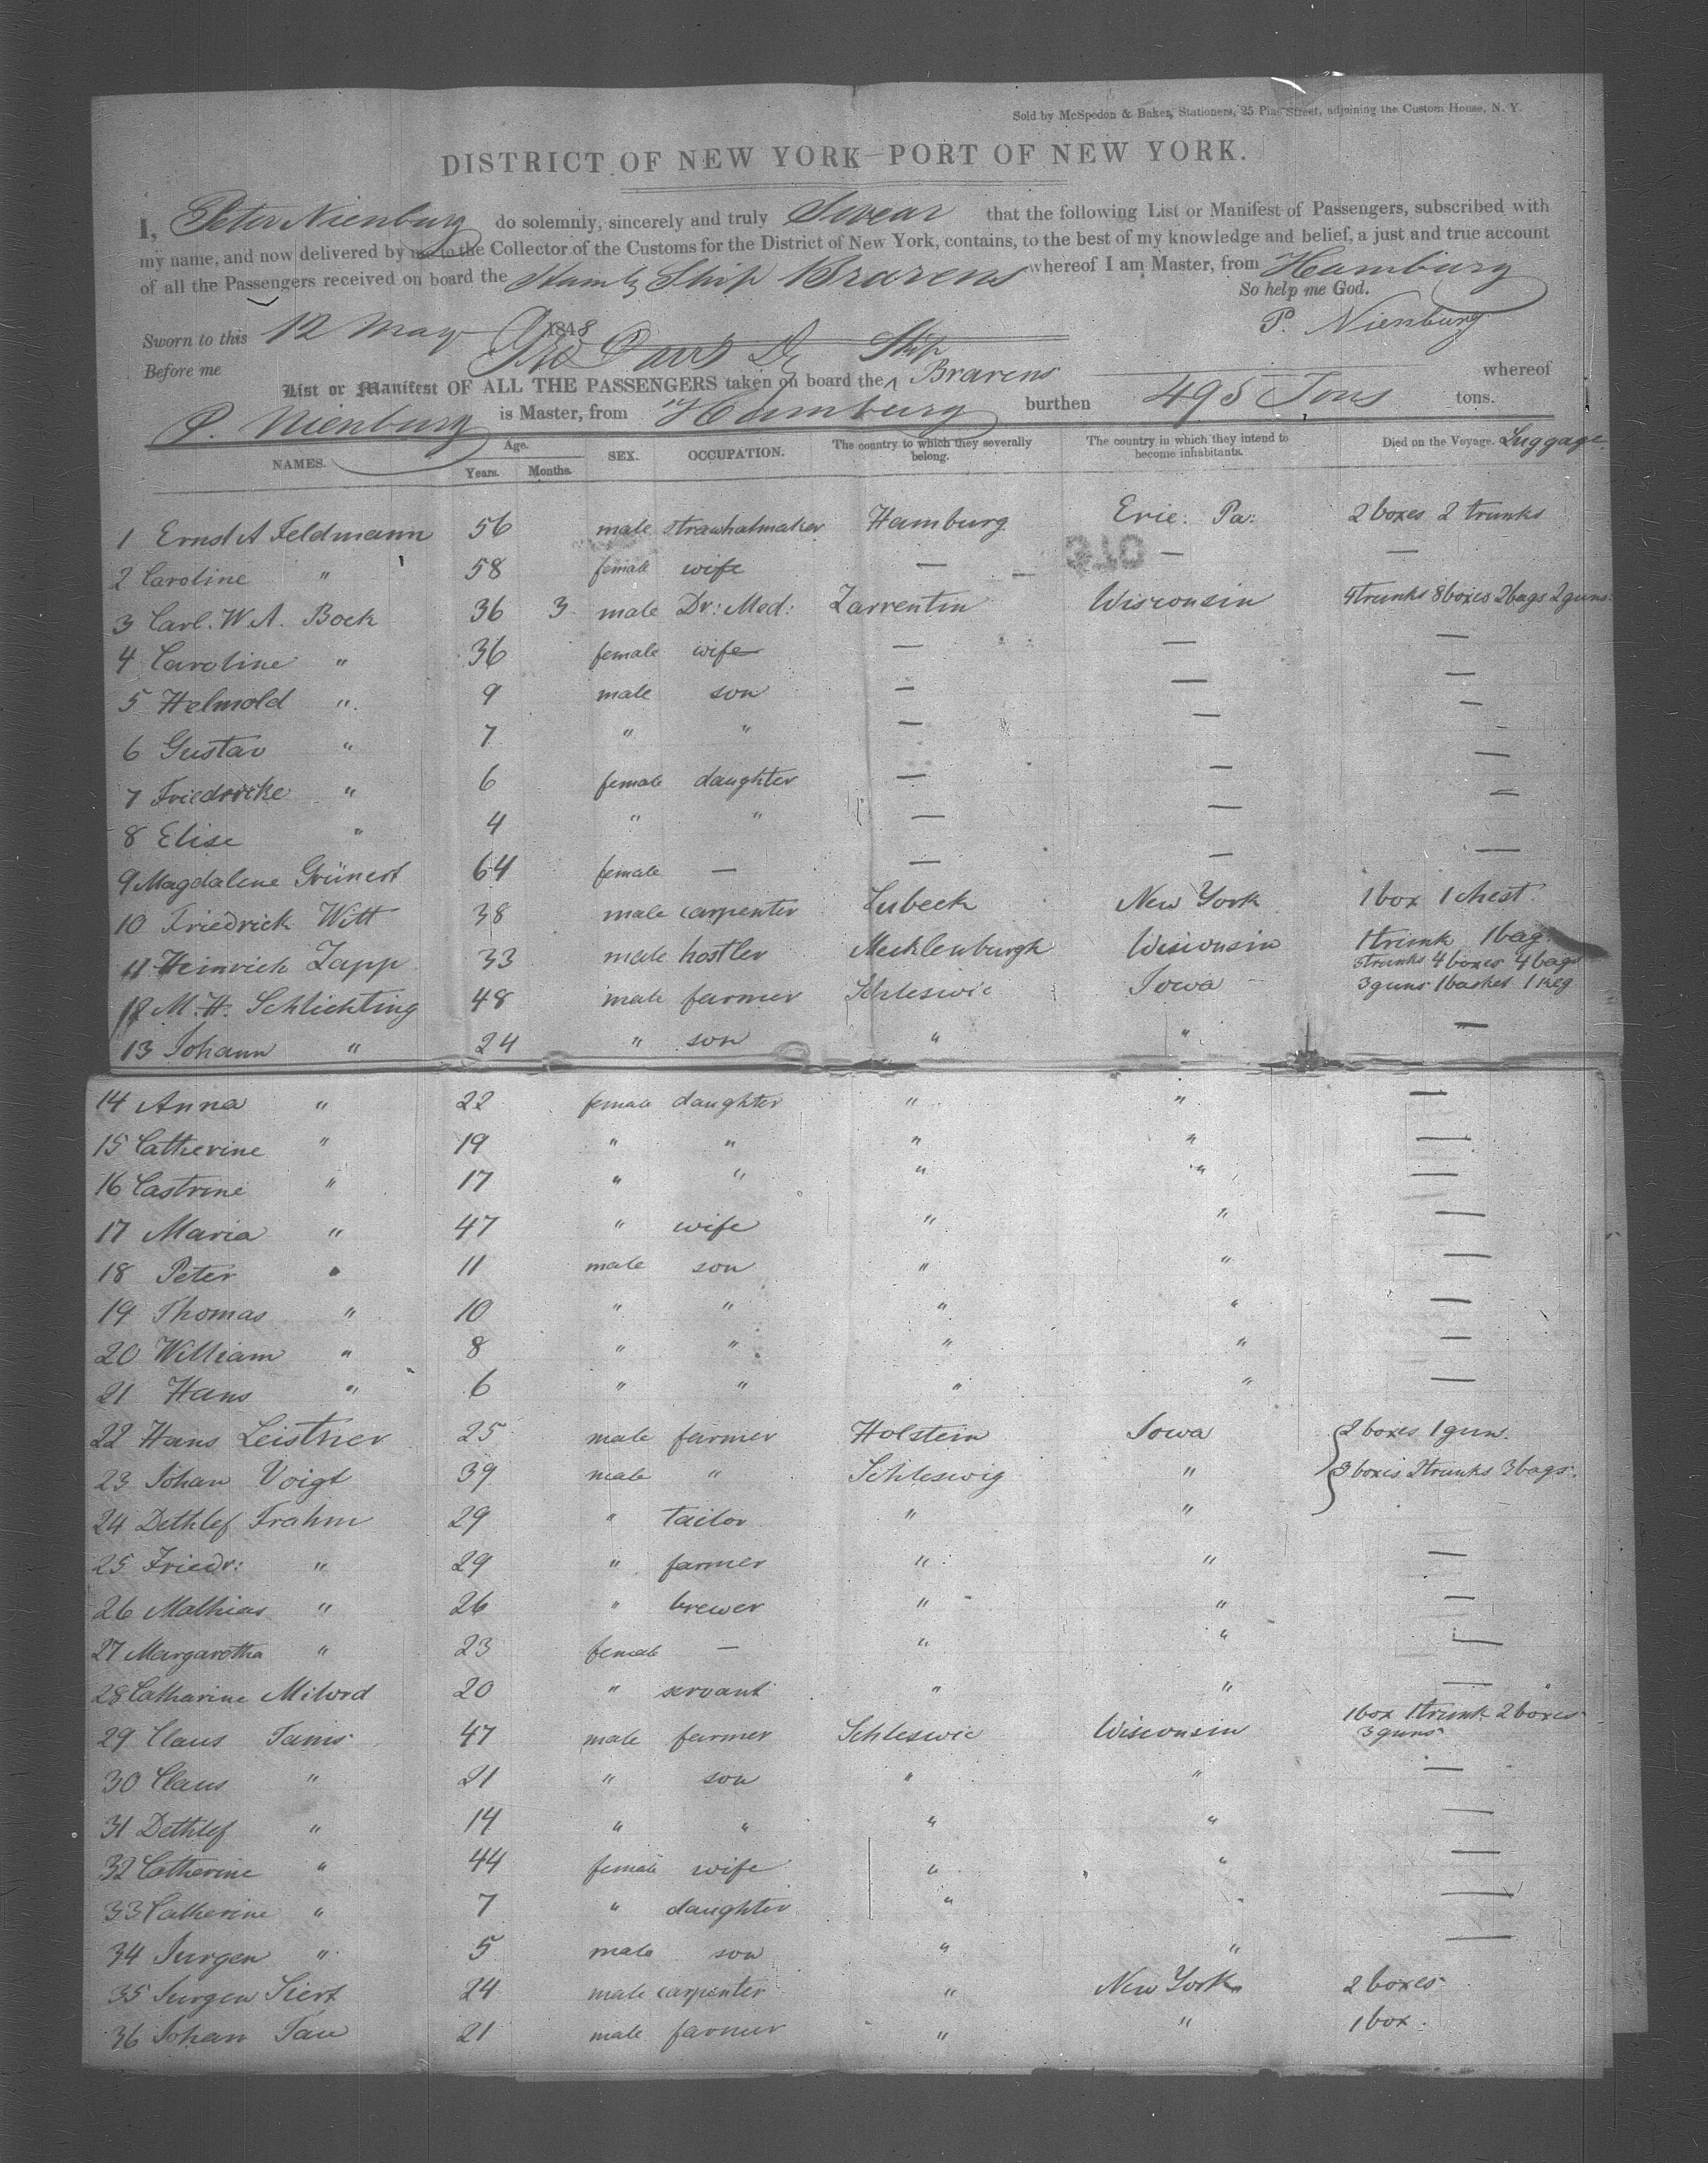 Sold by McSpedon & Baker, Stationers, 25 Pine Street, adjoining the Custom House, N. Y.
DISTRICT OF NEW YORK—PORT OF NEW YORK.
I, Peter Nienburg do solemnly, sincerely and truly Swear that the following List or Manifest of Passengers, subscribed with
my name, and now delivered by me to the Collector of the Customs for the District of New York, contains, to the best of my knowledge and belief, a just and true account
of all the Passengers received on board the Hambg Ship Brarens whereof I am Master, from Hamburg
So help me God.
Sworn to this 12 May 1848 P. Nienburg
Before me
List or Manifest OF ALL THE PASSENGERS taken on board the Ship Brarens whereof
P. Nienburg is Master, from Hamburg burthen 495 Tons tons.
NAMES. Age. Years. Months. SEX. OCCUPATION. The country to which they severally belong. The country in which they intend to become inhabitants. Died on the Voyage. Luggage
1 Ernst A Feldmann 56 male strawhatmaker Hamburg Erie. Pa: 2 boxes 2 trunks
2 Caroline " 58 female wife — — —
3 Carl. W. A. Bock 36 3 male Dr: Med: Zarrentin Wisconsin 4 trunks 8 boxes 2 bags 2 guns
4 Caroline " 36 female wife — — —
5 Helmold " 9 male son — — —
6 Gustav " 7 " " — — —
7 Friedericke " 6 female daughter — — —
8 Elise " 4 " " — — —
9 Magdalene Grünert 64 female — — — —
10 Friedrick Witt 38 male carpenter Lubeck New York 1 box 1 chest
11 Heinrich Zapp 33 male hostler Mecklenburgh Wisconsin 1 trunk 1 bag
12 M. H. Schlichting 48 male farmer Schleswic Iowa 5 trunks 4 boxes 4 bags
3 guns 1 basket 1 keg
13 Johann " 24 " son " " —
14 Anna " 22 female daughter " " —
15 Catherine " 19 " " " " —
16 Castrine " 17 " " " " —
17 Maria " 47 " wife " " —
18 Peter " 11 male son " " —
19 Thomas " 10 " " " " —
20 William " 8 " " " " —
21 Hans " 6 " " " " —
22 Hans Leistner 25 male farmer Holstein Iowa 2 boxes 1 gun.
23 Johan Voigt 39 male " Schleswig " 3 boxes 2 trunks 3 bags.
24 Dethlef Frahm 29 " tailor " "
25 Friedr: " 29 " farmer " " —
26 Mathias " 26 " brewer " " —
27 Margaretha " 23 female — " " —
28 Catharine Milord 20 " servant " " —
29 Claus Tams 47 male farmer Schleswic Wisconsin 1 box 1 trunk 2 boxes
3 guns
30 Claus " 21 " son " " —
31 Dethlef " 14 " " " " —
32 Catherine " 44 female wife " " —
33 Catherine " 7 " daughter " " —
34 Jurgen " 5 male son " " —
35 Jurgen Siert 24 male carpenter " New York 2 boxes
36 Johan Tau 21 male farmer " " 1 box.